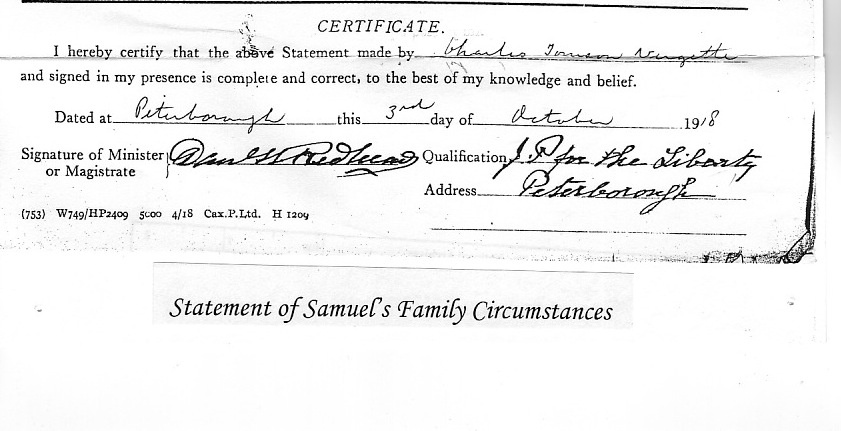 CERTIFICATE.
I hereby certify that the above Statement made by Charles
and signed in my presence is complete and correct, to the best of my knowledge and belief.
Dated at Peterborough this 3rd day of October 1918
Signature of Minister Redhead Qualification J.P for the Liberty
or Magistrate
Address Peterborough
(753) W749/HP2409 5000 4/18 Cax.P.Ltd. H 1209
Statement of Samuel's Family Circumstances